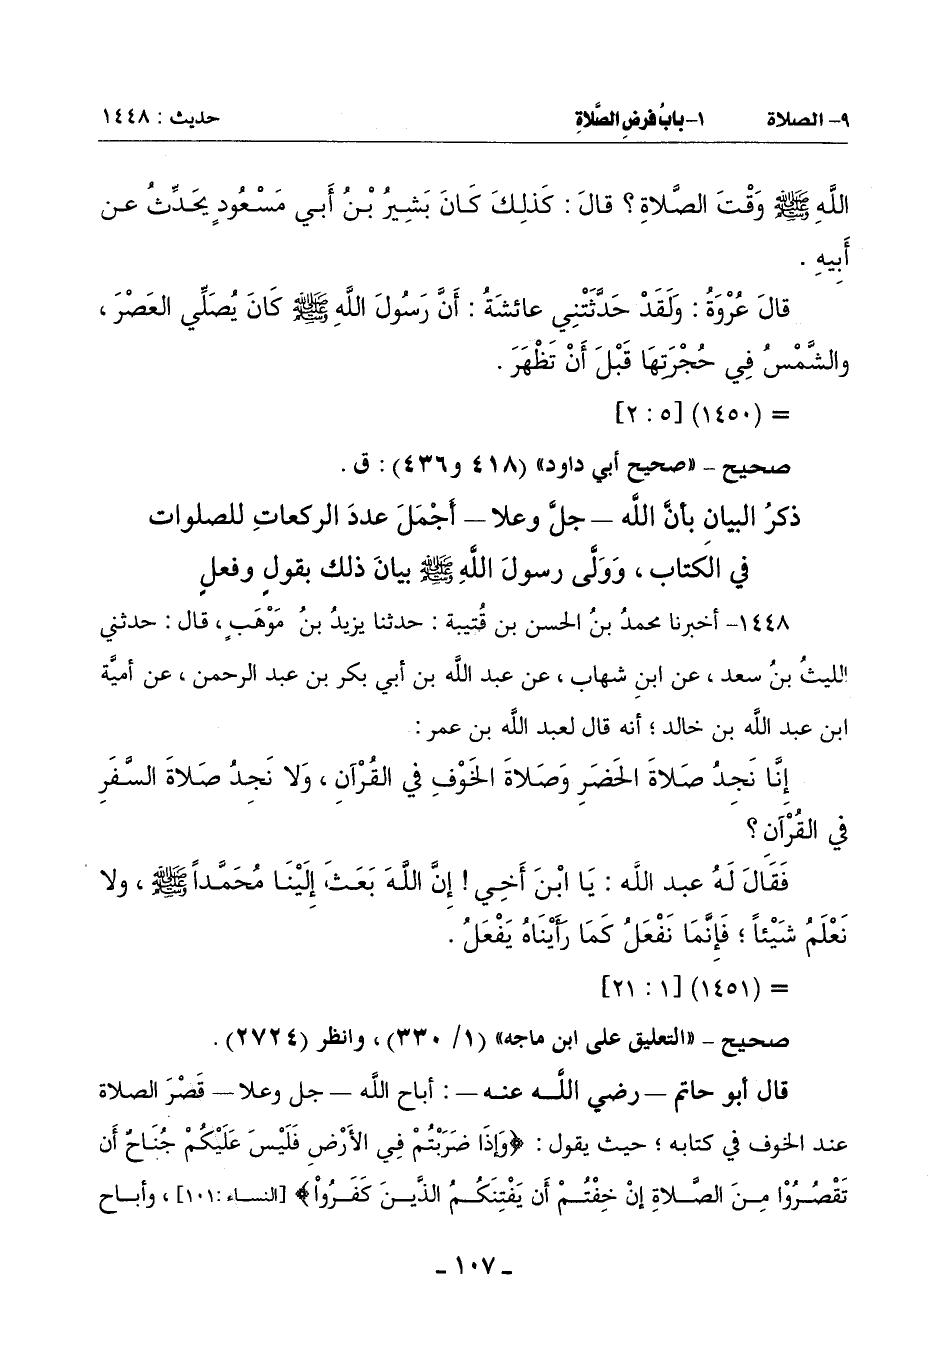 ٩- الصلاة ١- بابُ فرضِ الصَّلاةِ حديث : ١٤٤٨
اللَّهِ ﷺ وَقْتَ الصَّلاةِ ؟ قالَ : كَذلِكَ كَانَ بَشِيرُ بْنُ أَبي مَسْعُودٍ يحَدِّثُ عن
أَبيهِ .
قالَ عُرْوَةُ : ولَقَدْ حَدَّثَتْنِي عائشةُ : أَنَّ رَسُولَ اللَّهِ ﷺ كَانَ يُصَلِّي العَصْرَ ،
والشَّمْسُ فِي حُجْرَتِهَا قَبْلَ أَنْ تَظْهَرَ .
= (١٤٥٠) [٥ : ٢]
صحيح – «صحيح أبي داود» (٤١٨ و٤٣٦) : ق .
ذكرُ البيانِ بأنَّ اللَّه – جلَّ وعلا – أَجْمَلَ عددَ الركعاتِ للصلوات
في الكتاب ، وَوَلَّى رسولَ اللَّهِ ﷺ بيانَ ذلك بقولٍ وفعلٍ
١٤٤٨- أخبرنا محمدُ بنُ الحسن بن قُتيبة : حدثنا يزيدُ بنُ مَوْهَبٍ ، قال : حدثني
الليثُ بنُ سعد ، عن ابنِ شهاب ، عن عبد اللَّه بن أبي بكر بن عبد الرحمن ، عن أميَّة
ابن عبد اللَّه بن خالد ؛ أنه قال لعبد اللَّه بن عمر :
إِنَّا نَجِدُ صَلاةَ الحَضَرِ وَصَلاةَ الخَوْفِ في القُرْآنِ ، وَلا نَجِدُ صَلاةَ السَّفَرِ
في القُرْآنِ ؟
فَقَالَ لَهُ عبد اللَّه : يَا ابْنَ أَخِي ! إِنَّ اللَّهَ بَعَثَ إِلَيْنَا مُحَمَّداً ﷺ ، ولا
نَعْلَمُ شَيْئاً ؛ فَإِنَّمَا نَفْعَلُ كَمَا رَأَيْنَاهُ يَفْعَلُ .
= (١٤٥١) [١ : ٢١]
صحيح – «التعليق على ابن ماجه» (١/ ٣٣٠) ، وانظر (٢٧٢٤) .
قال أبو حاتم – رضي اللَّه عنه – : أباح اللَّه – جل وعلا – قَصْرَ الصلاة
عند الخوف في كتابه ؛ حيث يقول : ﴿وَإِذَا ضَرَبْتُمْ فِي الأَرْضِ فَلَيْسَ عَلَيْكُمْ جُنَاحٌ أَن
تَقْصُرُوْا مِنَ الصَّلاةِ إِنْ خِفْتُمْ أَن يَفْتِنَكُمُ الذَّينَ كَفَرُواْ﴾ [النساء :١٠١] ، وأباح
- ١٠٧ -